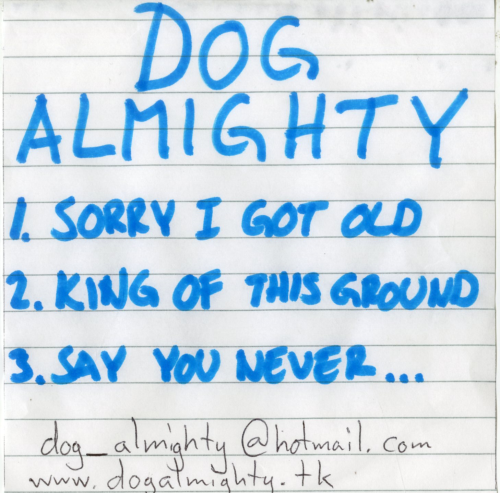 DOG
ALMIGHTY
1. SORRY I GOT OLD
2. KING OF THIS GROUND
3. SAY YOU NEVER...
dog_almighty@hotmail.com
www.dogalmighty.tk